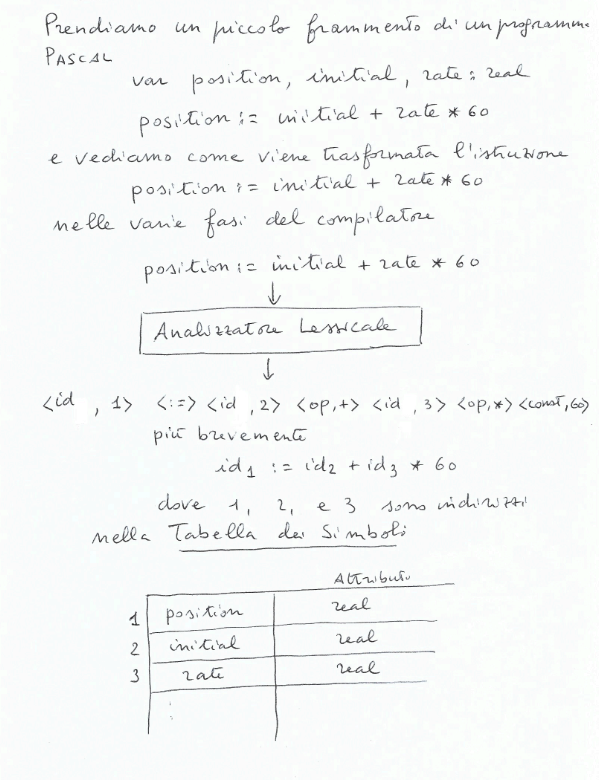 Prendiamo un piccolo frammento di un programma
PASCAL
var position, initial, rate : real
position := initial + rate * 60
e vediamo come viene trasformata l'istruzione
position := initial + rate * 60
nelle varie fasi del compilatore
position := initial + rate * 60
↓
Analizzatore Lessicale
↓
<id , 1> <:=> <id , 2> <op,+> <id , 3> <op,*> <const,60>
più brevemente
id1 := id2 + id3 * 60
dove 1, 2, e 3 sono indirizzi
nella Tabella dei Simboli
Attributi
1 position real
2 initial real
3 rate real
: